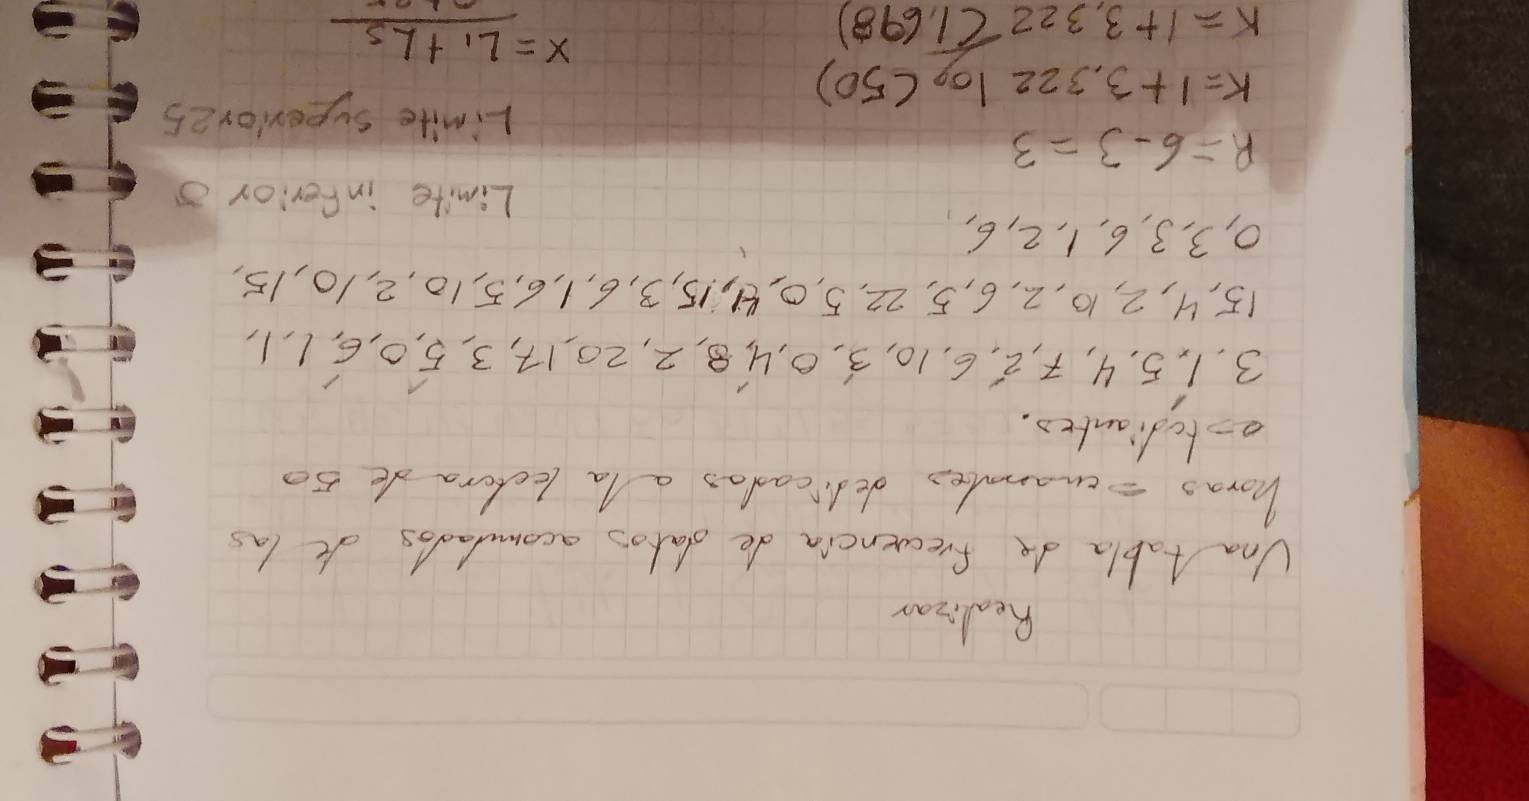 Realizar
Una tabla de frecuencia de datos acomulados de las
horas semanales dedicadas a la lectura de 50
estudiantes.
3, 1, 5, 4, 7, 2, 6, 10, 3, 0, 4, 8, 2, 20, 17, 3, 5, 0, 6, 1, 1,
15, 4, 2, 10, 2, 6, 5, 22, 5, 0, 4, 15, 3, 6, 1, 6, 5, 10, 2, 10, 15,
0, 3, 3, 6, 1, 2, 6,
Limite inferior 0
R = 6 - 3 = 3
Limite superior 25
K = 1 + 3,322 log (50)
X = Li + Ls
K = 1 + 3,322 (1,698)